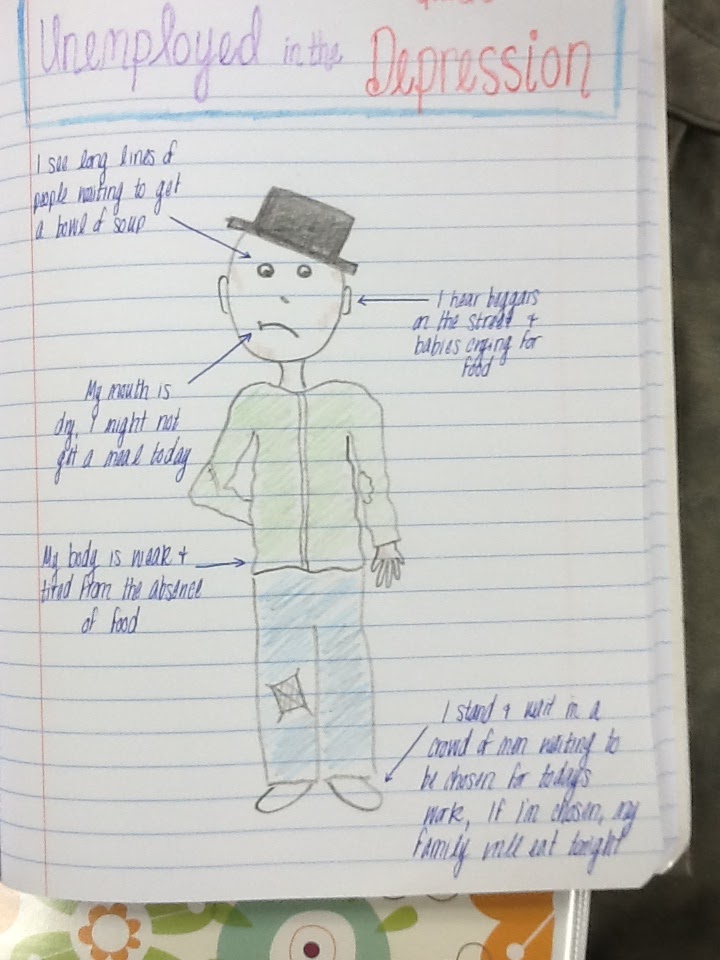 Unemployed in the Depression
I see long lines of
people waiting to get
a bowl of soup
I hear beggars
on the street +
babies crying for
food
My mouth is
dry, I might not
get a meal today
My body is weak +
tired from the absence
of food
I stand + wait in a
crowd of men waiting to
be chosen for todays
work, If I'm chosen, my
family will eat tonight